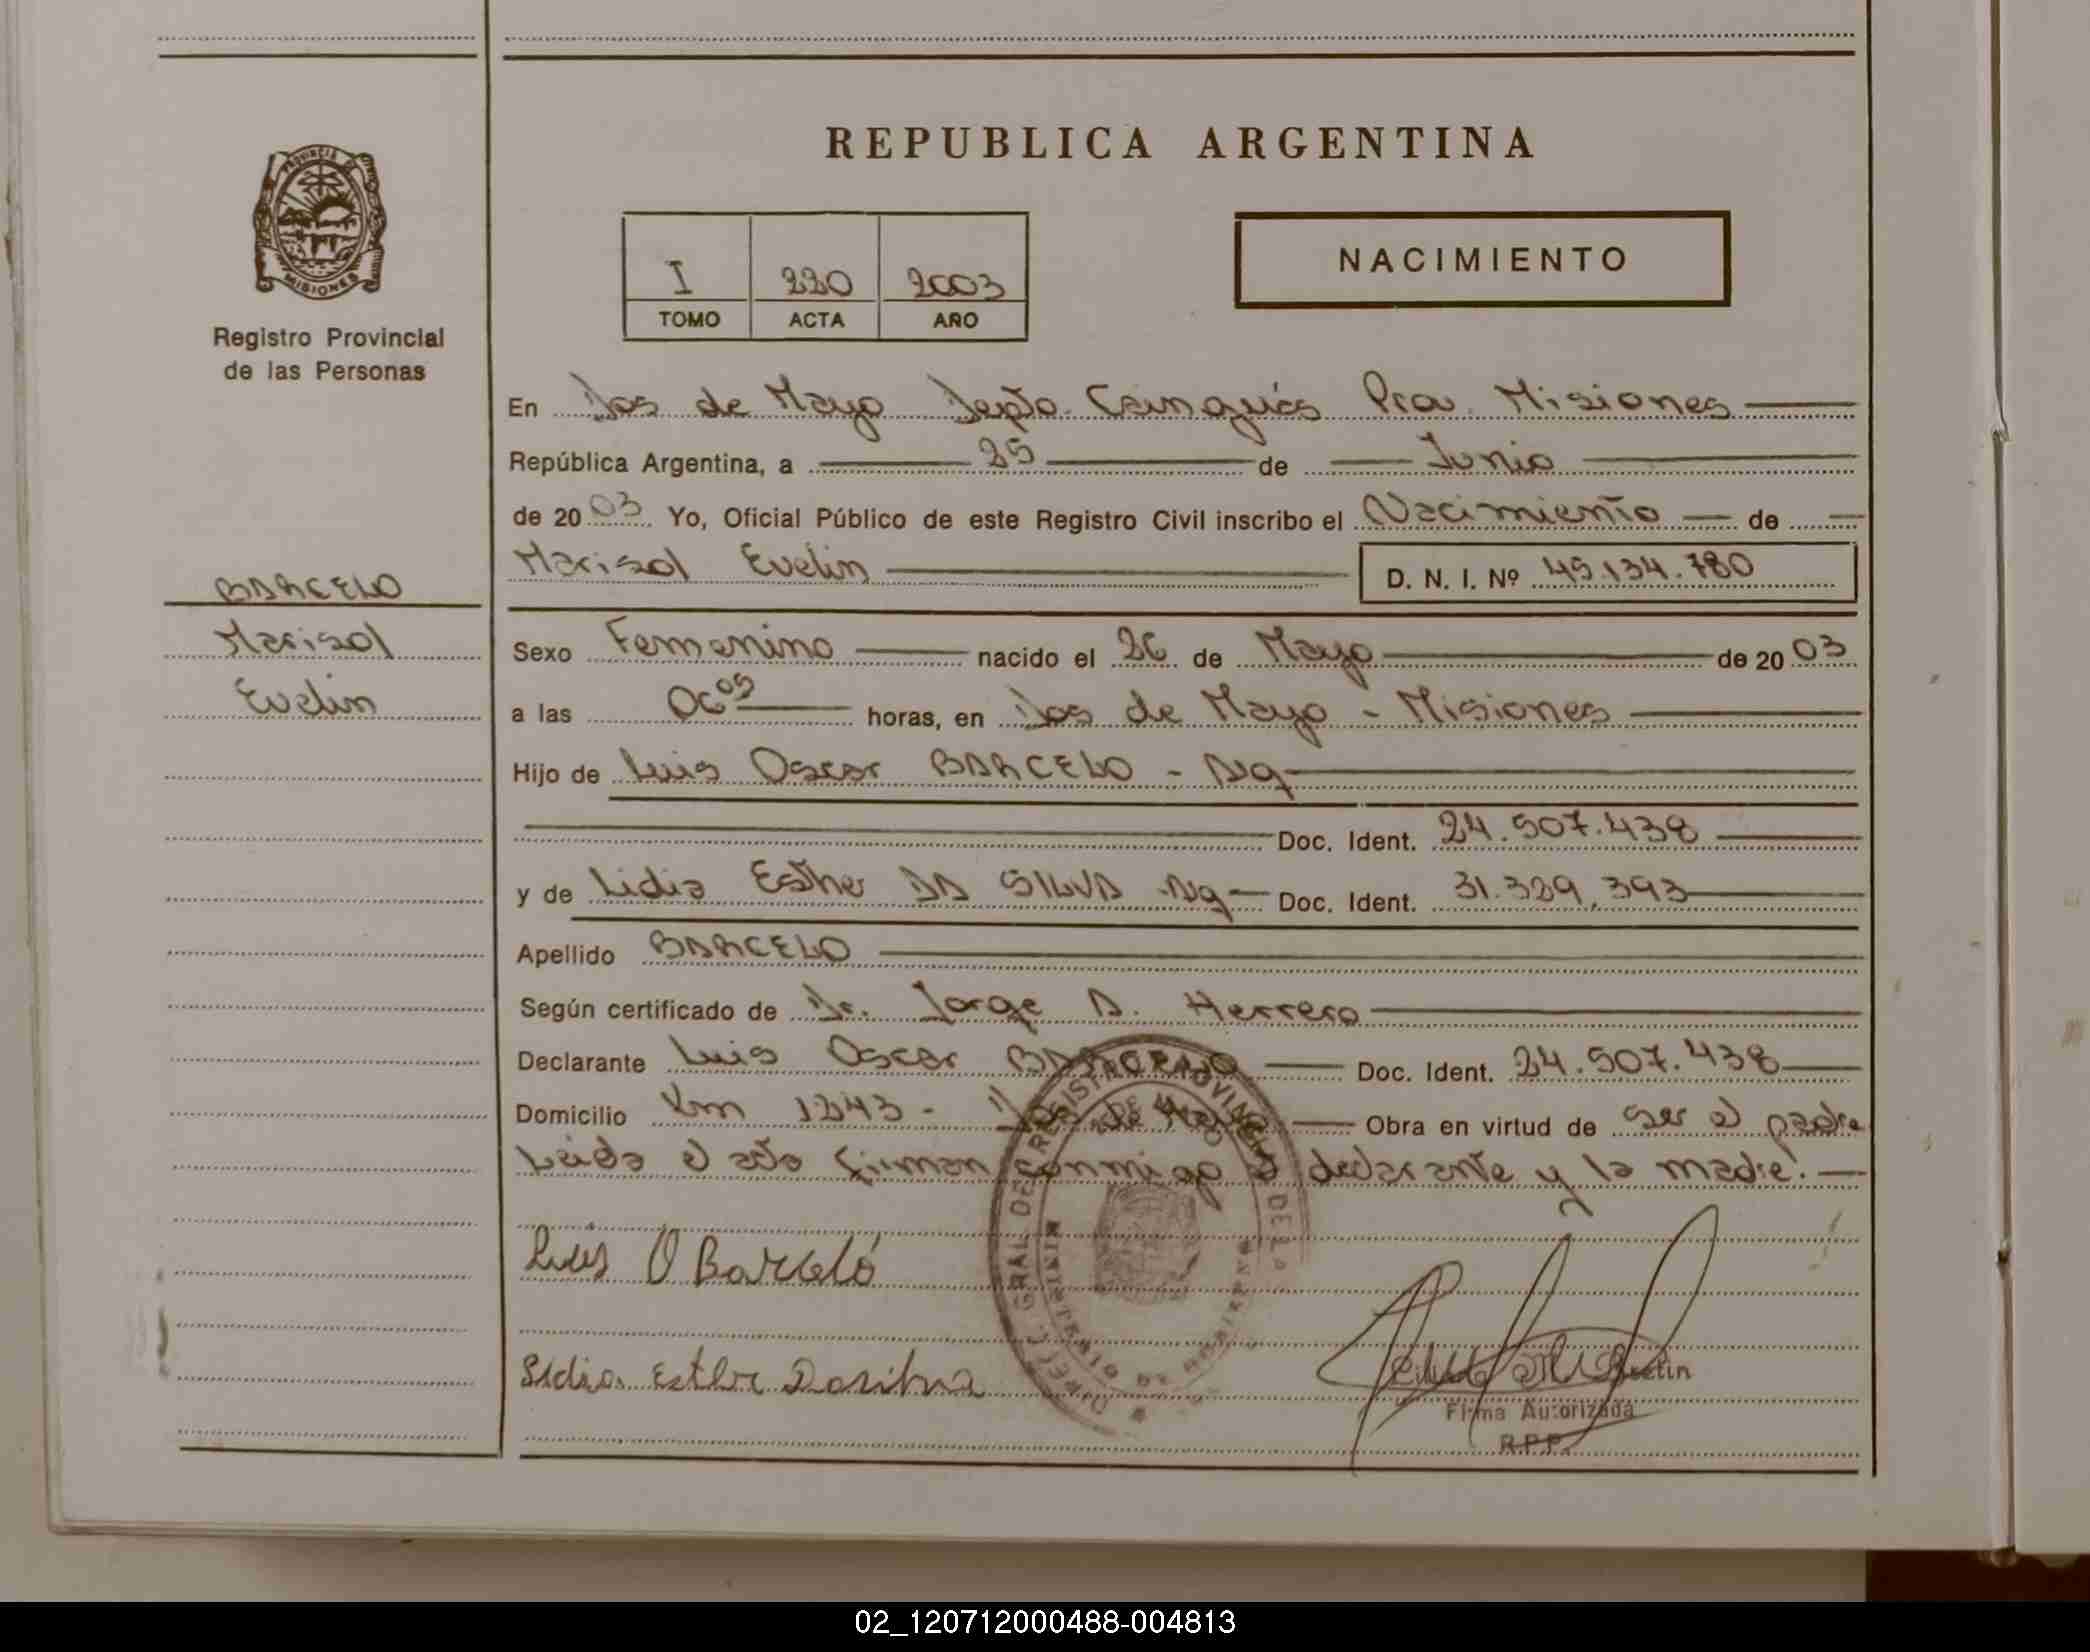 REPUBLICA ARGENTINA
PROVINCIA DE
MISIONES
Registro Provincial
de las Personas
I 220 2003
TOMO ACTA AÑO
NACIMIENTO
En Dos de Mayo Depto. Cainguás Pcia. Misiones
República Argentina, a 25 de Junio
de 2003 Yo, Oficial Público de este Registro Civil inscribo el Nacimiento de
Marisol Evelin D. N. I. Nº 45.134.780
BARCELO
Marisol
Evelin
Sexo Femenino nacido el 26 de Mayo de 2003
a las 06 05 horas, en Dos de Mayo - Misiones
Hijo de Luis Oscar BARCELO - Arg
Doc. Ident. 24.507.438
y de Lidia Esther DA SILVA Arg Doc. Ident. 31.329.393
Apellido BARCELO
Según certificado de Dr. Jorge A. Herrero
Declarante Luis Oscar BARCELO Doc. Ident. 24.507.438
Domicilio Km 1243 - Dos de Mayo Obra en virtud de ser el padre
Leída el acta firman conmigo el declarante y la madre.
Luis O Barceló
Lidia Esther Dasilva
Firma Autorizada
R.P.P.
02_120712000488-004813